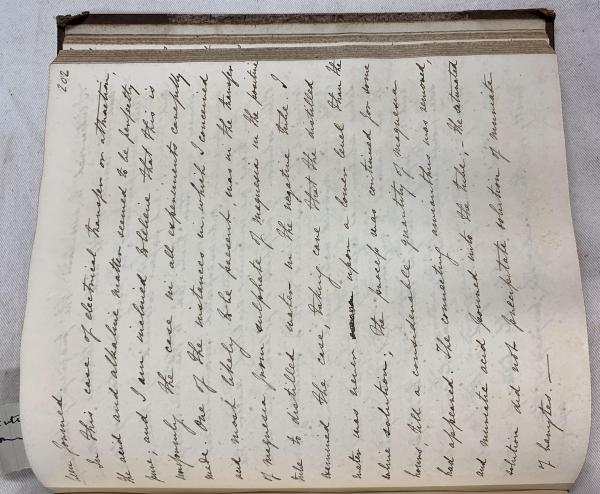 202
were formed.
In this case of electrical transfer or attraction,
the acid and alkaline matter seemed to be perfectly
pure; and I am inclined to believe that this is
uniformly the case in all experiments carefully
made. One of the instances in which I conceived
acid most likely to be present was in the transfer
of magnesia from sulphate of magnesia in the positive
tube to distilled water in the negative tube. I
examined the case, taking care that the distilled
water was never upon a lower level than the
saline solution; the process was continued for some
hours, till a considerable quantity of magnesia
had appeared. The connecting amianthus was removed,
and muriatic acid poured into the tube; – the saturated
solution did not precipitate solution of muriate
of barytes. —